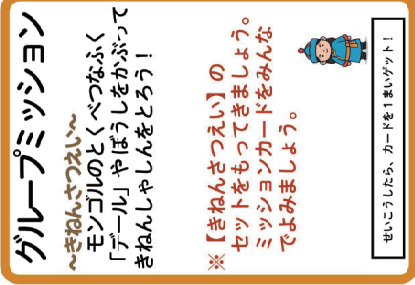 グループミッション
~きねんさつえい~
モンゴルのとくべつなふく
「デール」やぼうしをかぶって
きねんしゃしんをとろう!
※【きねんさつえい】の
セットをもってきましょう。
ミッションカードをみんな
でよみましょう。
せいこうしたら、カードを1まいゲット!